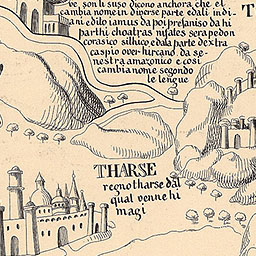 ve son li suso dicono anchora che el
cambia nome in diverse parte e dali indi
ani edito iamus da poi prefaniso da hi
parthi choatras nifates sera pedon
corasico silhico e dala parte dextra
caspio over hircano da se
nestra amazonico e cosi
cambia nome segondo
le lengue
T
THARSE
regno tharse dal
qual venne hi
magi